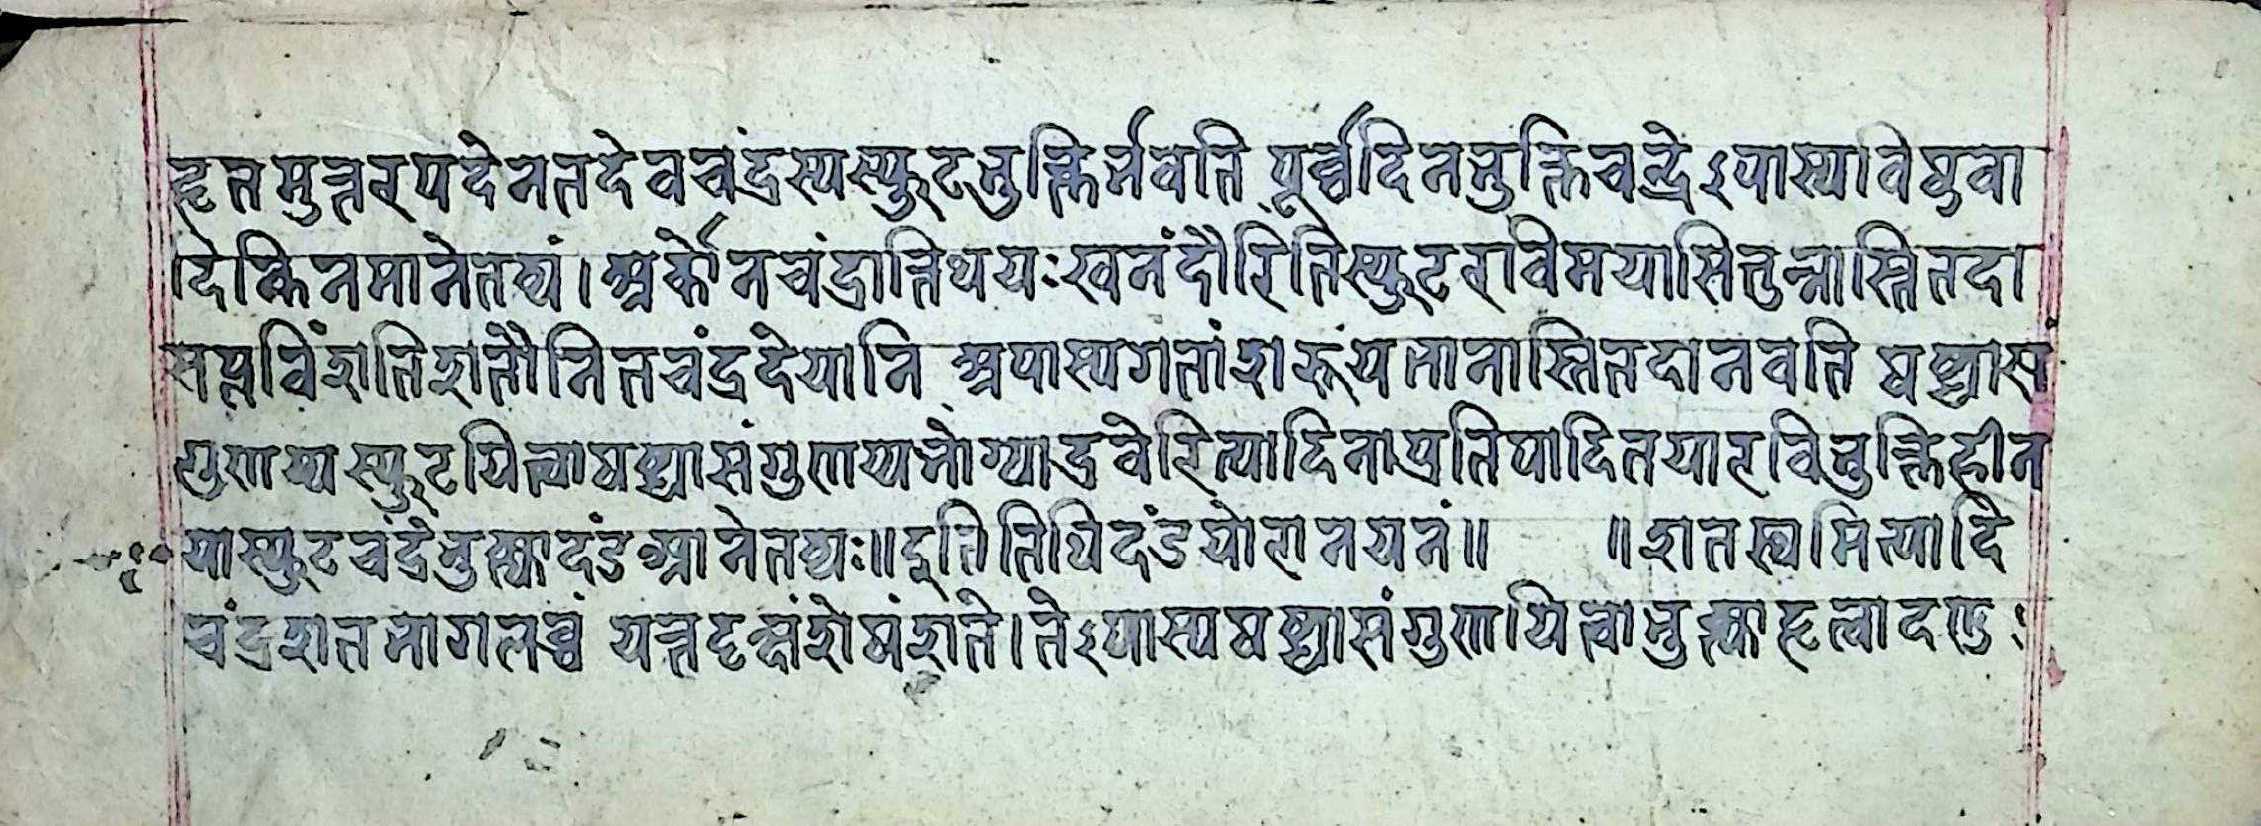 हृतमुत्तरपदेनतदेवचंद्रस्यस्फुटभुक्तिर्भवति पूर्व्वदिनभुक्तिचन्द्रेऽपास्यविषुवा
दिकिनमानेतव्यं। अर्कोनचंद्रात्तिथयःखनंदौरितिस्फुटरविमयासितुन्नास्तितदा
सप्तविंशतिशतौनितचंद्रदेयानि अपास्यगतांशरूयतानास्तितदानवति षष्ट्यास
गुणय्यस्फुटयित्वाषष्ट्यासंगुणय्यभोग्याद्रवेरित्यादिनाप्रतिपादितयारविभुक्तिहीन
यास्फुटचंद्रभुक्त्यादंडआनेतव्यः॥इतितिथिदंडयोरानयनं॥ ॥शतस्थमित्यादि
चंद्रशतभागलब्धं यत्तदृक्षंशेषंशते।तेऽपास्यषष्ट्यासंगुणयित्वाभुक्त्याहृत्वादण्डः